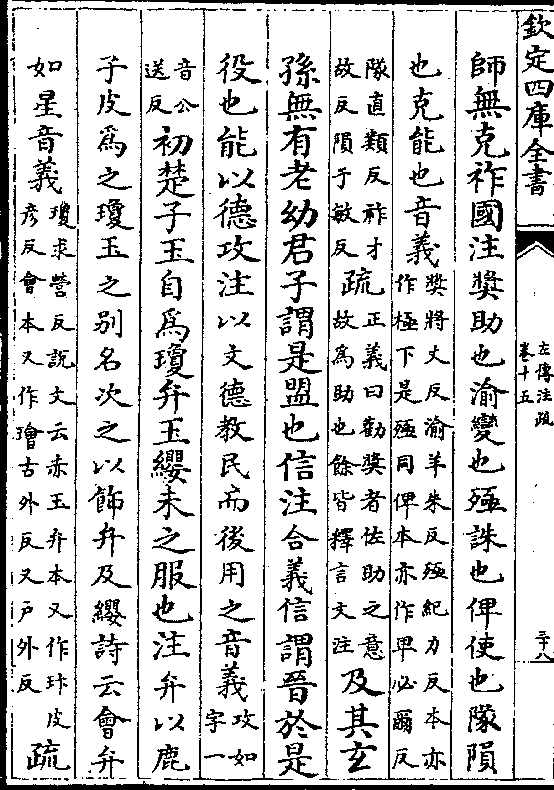 欽定四庫全書
左傳注疏
卷十五
三十八
師無克祚國注獎助也渝變也殛誅也俾使也隊隕
也克能也音義
獎將丈反渝羊朱反殛紀力反本亦
作極下是殛同俾本亦作卑必爾反
隊直類反祚才
故反隕于敏反
疏
正義曰勸獎者佐助之意
故為助也餘皆釋言文注
及其玄
孫無有老幼君子謂是盟也信注合義信謂晉於是
役也能以德攻注以文德教民而後用之音義
攻如
字一
音公
送反
初楚子玉自為瓊弁玉纓未之服也注弁以鹿
子皮為之瓊玉之别名次之以飾弁及纓詩云會弁
如星音義
瓊求營反說文云赤玉弁本又作玣皮
彦反會本又作璯古外反又戶外反
疏